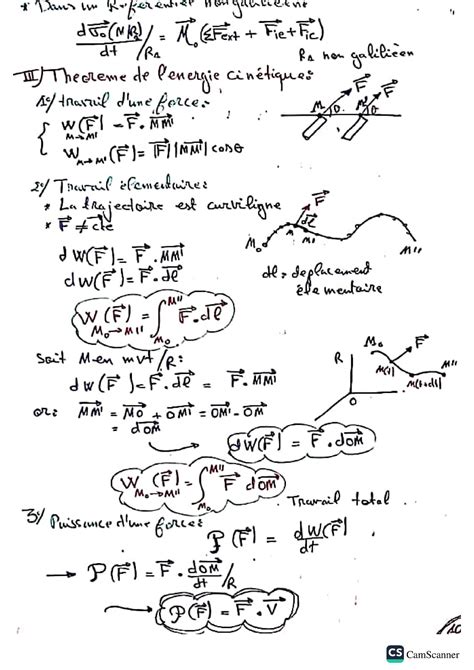 * Dans un Référentiel non galiléen
dσ₀(M/R₁)/dt /R₁ = M₀(ΣFext + Fie + Fic)
R₁ non galiléen
III/ Theoreme de l'energie cinétique:
1°/ travail d'une force:
W(F) = F . MM'
M→M'
W M→M' (F) = |F| |MM'| cosθ
F F
M M' θ θ
2°/ Travail élementaire:
* La trajectoire est curviligne
* F ≠ cte
F
dl
M₀ M M' M''
dW(F) = F . MM'
dW(F) = F . dl
dl = deplacement
élementaire
W(F) = ∫ M₀ M'' F . dl
M₀→M''
Soit M en mvt /R:
dW(F) = F . dl = F . MM'
M₀ F
R M(t) M''
M(t+dt)
O
or: MM' = MO + OM' = OM' - OM
= dOM
dW(F) = F . dOM
W(F) = ∫ M₀ M'' F dOM
M₀→M''
Travail total
3°/ Puissance d'une force:
P(F) = dW(F)/dt
→ P(F) = F . dOM/dt /R
→ P(F) = F . V
CS CamScanner